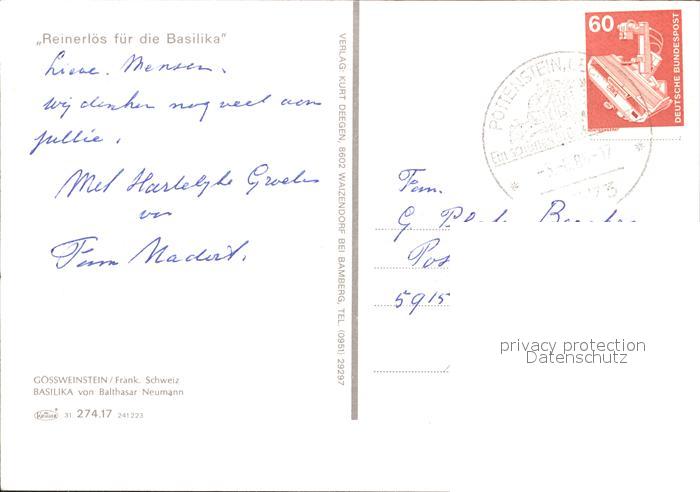 „Reinerlös für die Basilika"
Lieve. Mensen.
Wij denken nog veel aan
jullie.
Met Hartelijke Groeten
van
Fam
GÖSSWEINSTEIN / Frank. Schweiz
BASILIKA von Balthasar Neumann
31 274.17 241 223
VERLAG: KURT DEEGEN, 8602 WAIZENDORF BEI BAMBERG, TEL. (0951) 29297
POTTENSTEIN,
60
DEUTSCHE BUNDESPOST
Fam.
G
Pos
5915
privacy protection
Datenschutz